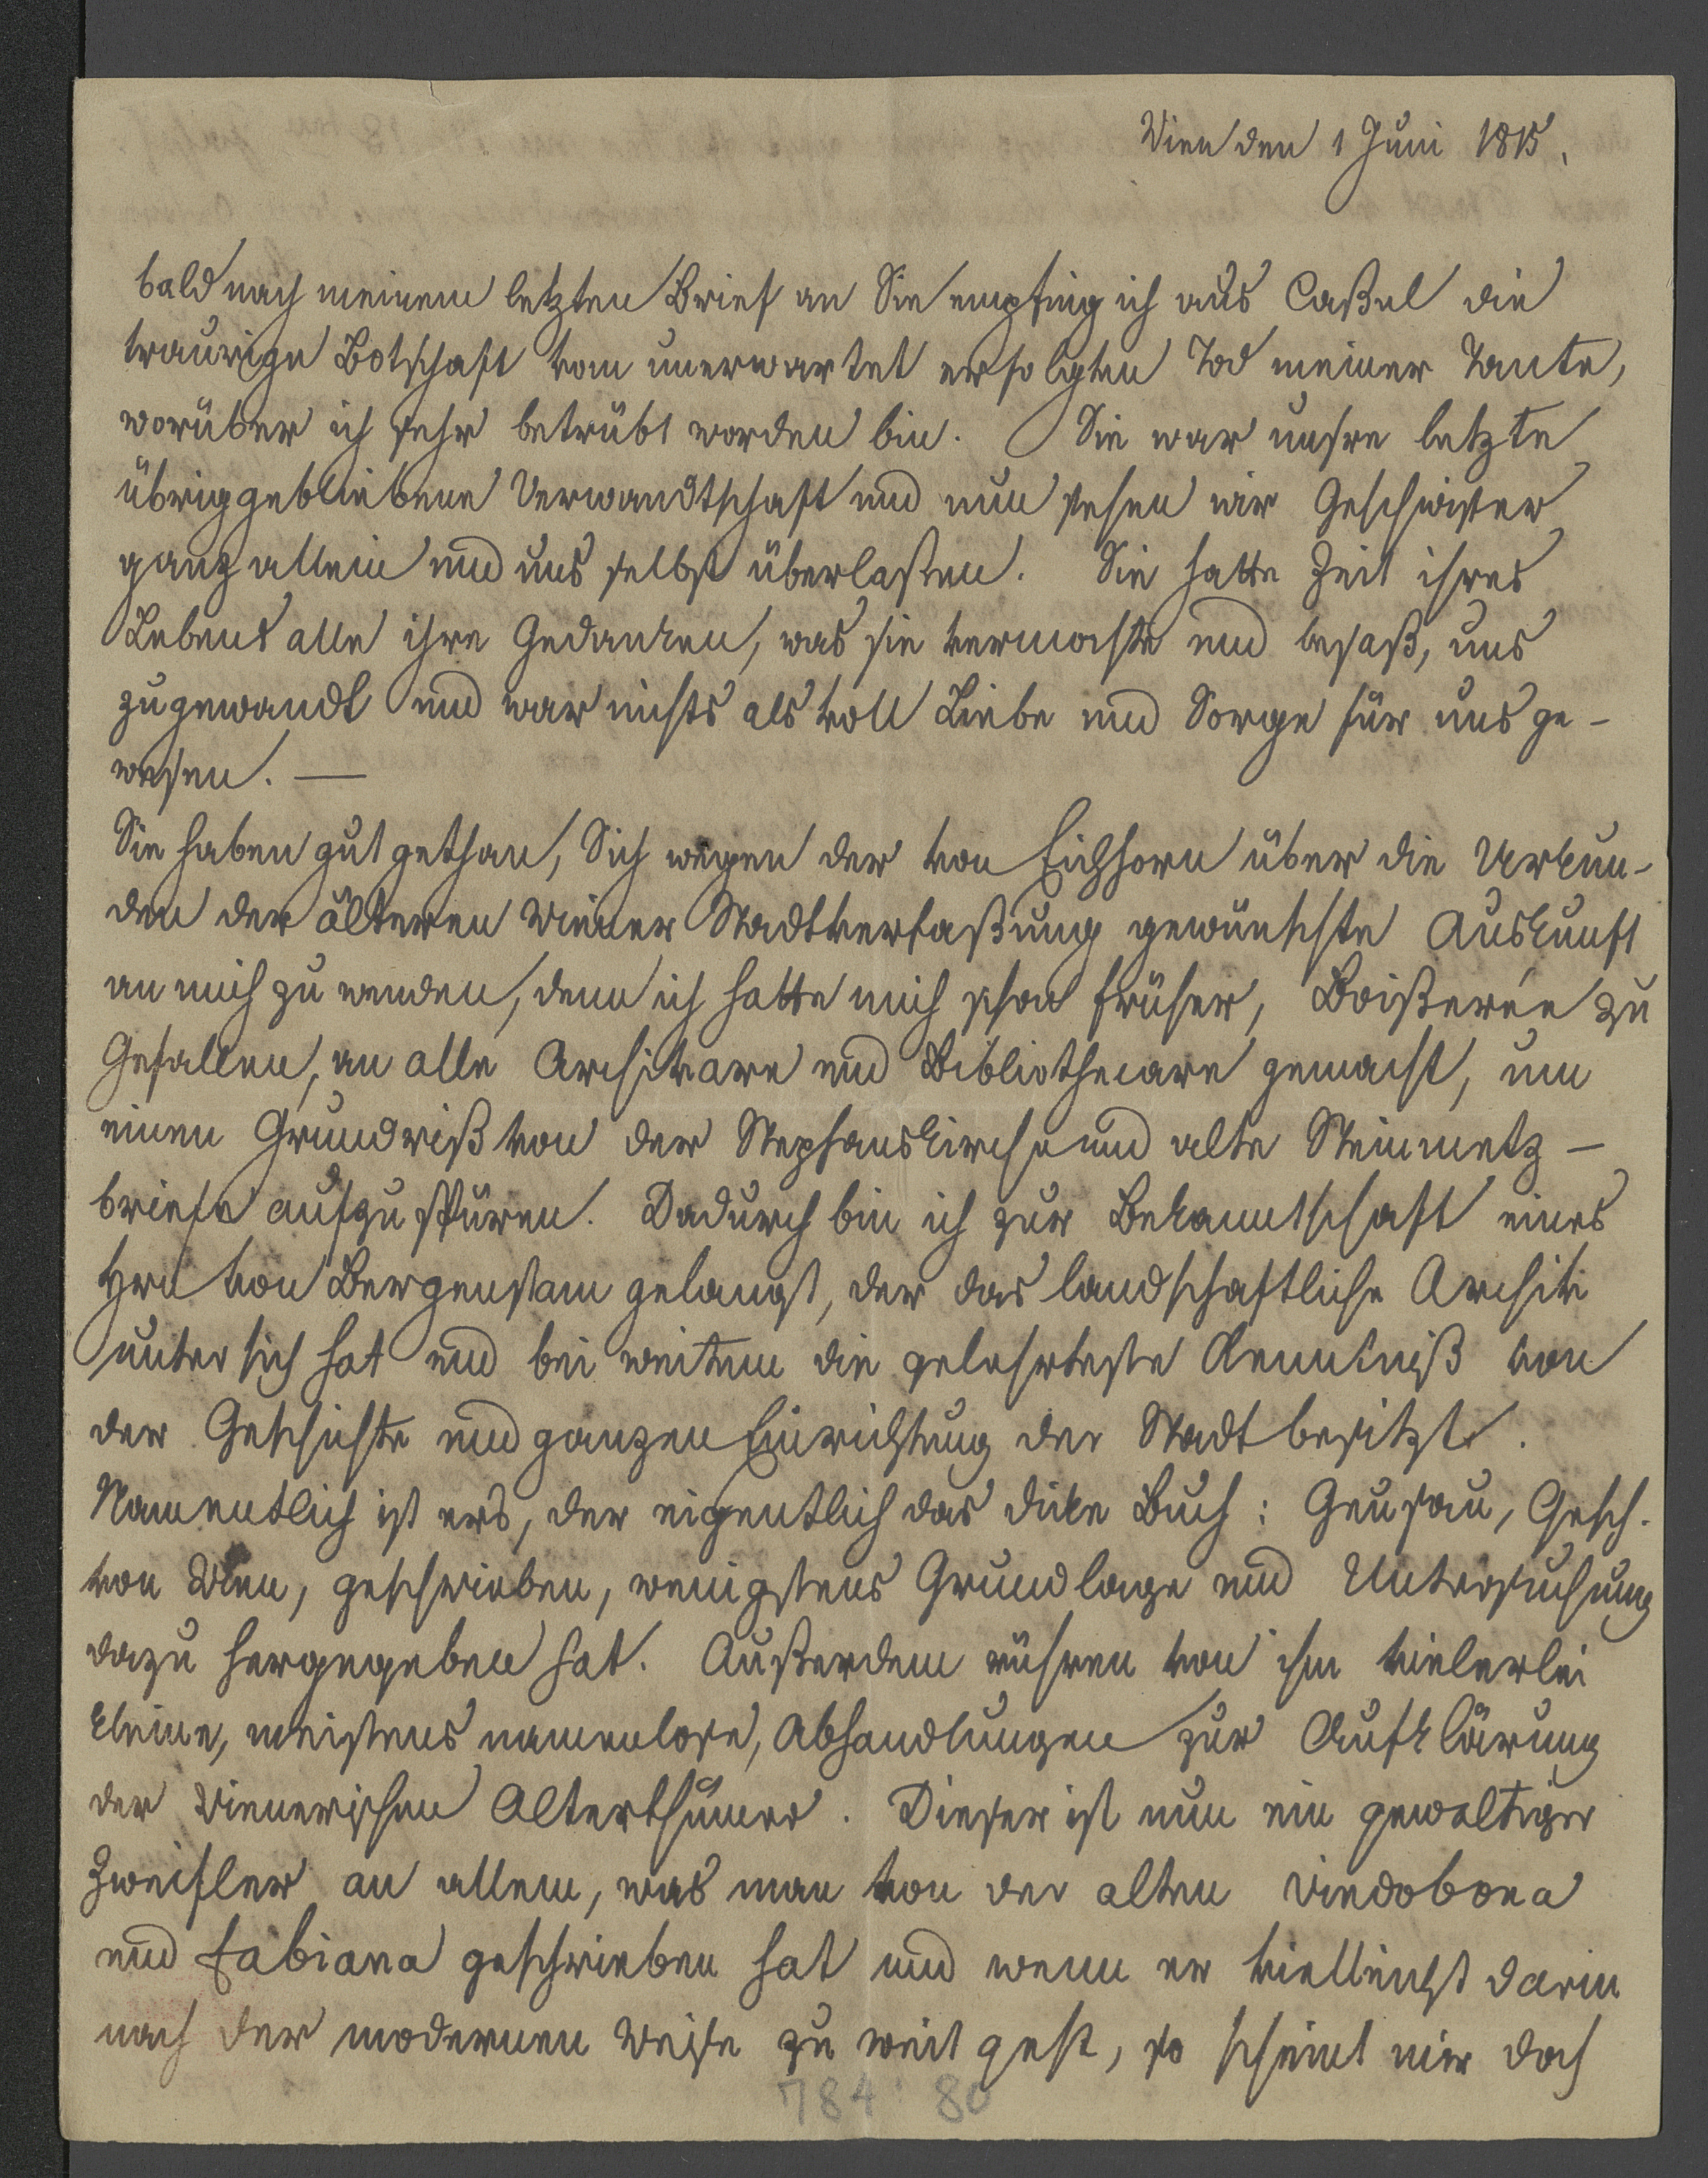 Wien den 1 Juni 1815.
bald nach meinem letzten Brief an Sie empfing ich aus Caßel die
traurige Botschaft vom unerwartet erfolgten Tod meiner Tante,
worüber ich sehr betrübt worden bin. Sie war unsre letzte
übriggebliebene Verwandtschaft und nun stehen wir Geschwister
ganz allein und uns selbst überlaßen. Sie hatte Zeit ihres
Lebens alle ihre Gedanken, was sie vermochte und besaß, uns
zugewandt und war nichts als voll Liebe und Sorge für uns ge-
wesen. —
Sie haben gut gethan, Sich wegen der von Eichhorn über die Urkun-
den der älteren Wiener Stadtverfaßung gewünschte Auskunft
an mich zu wenden, denn ich hatte mich schon früher, Boißerée zu
Gefallen, an alle Archivare und Bibliothecare gemacht, um
einen Grundriß von der Stephanskirche und alte Steinmetz-
briefe aufzuspüren. Dadurch bin ich zur Bekanntschaft eines
Hrn von Bergenstam gelangt, der das landschaftliche Archiv
unter sich hat und bei weitem die gelehrteste Kenntniß von
der Geschichte und ganzen Einrichtung der Stadt besitzt.
Namentlich ist ers, der eigentlich das dicke Buch: Geusau, Gesch.
von Wien, geschrieben, wenigstens Grundlage und Untersuchung
dazu hergegeben hat. Außerdem rühren von ihm vielerlei
kleine, meistens namenlose, Abhandlungen zur Aufklärung
der Wienerischen Alterthümer. Dieser ist nun ein gewaltiger
Zweifler an allem, was man von der alten Vindobona
und Fabiana geschrieben hat und wenn er vielleicht darin
nach der modernen Weise zu weit geht, so scheint mir doch
784 80